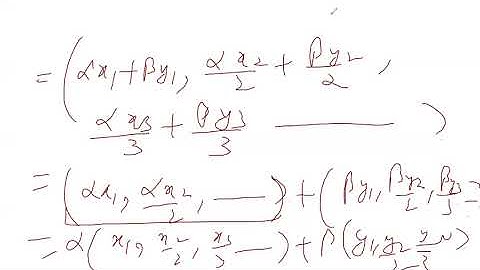 = (αx₁ + βy₁, αx₂/2 + βy₂/2,
αx₃/3 + βy₃/3 ——— )
= (αx₁, αx₂/2, —— ) + (βy₁, βy₂/2, βy₃/3 —
= α(x₁, x₂/2, x₃/3 — ) + β(y₁, y₂/2 y/3